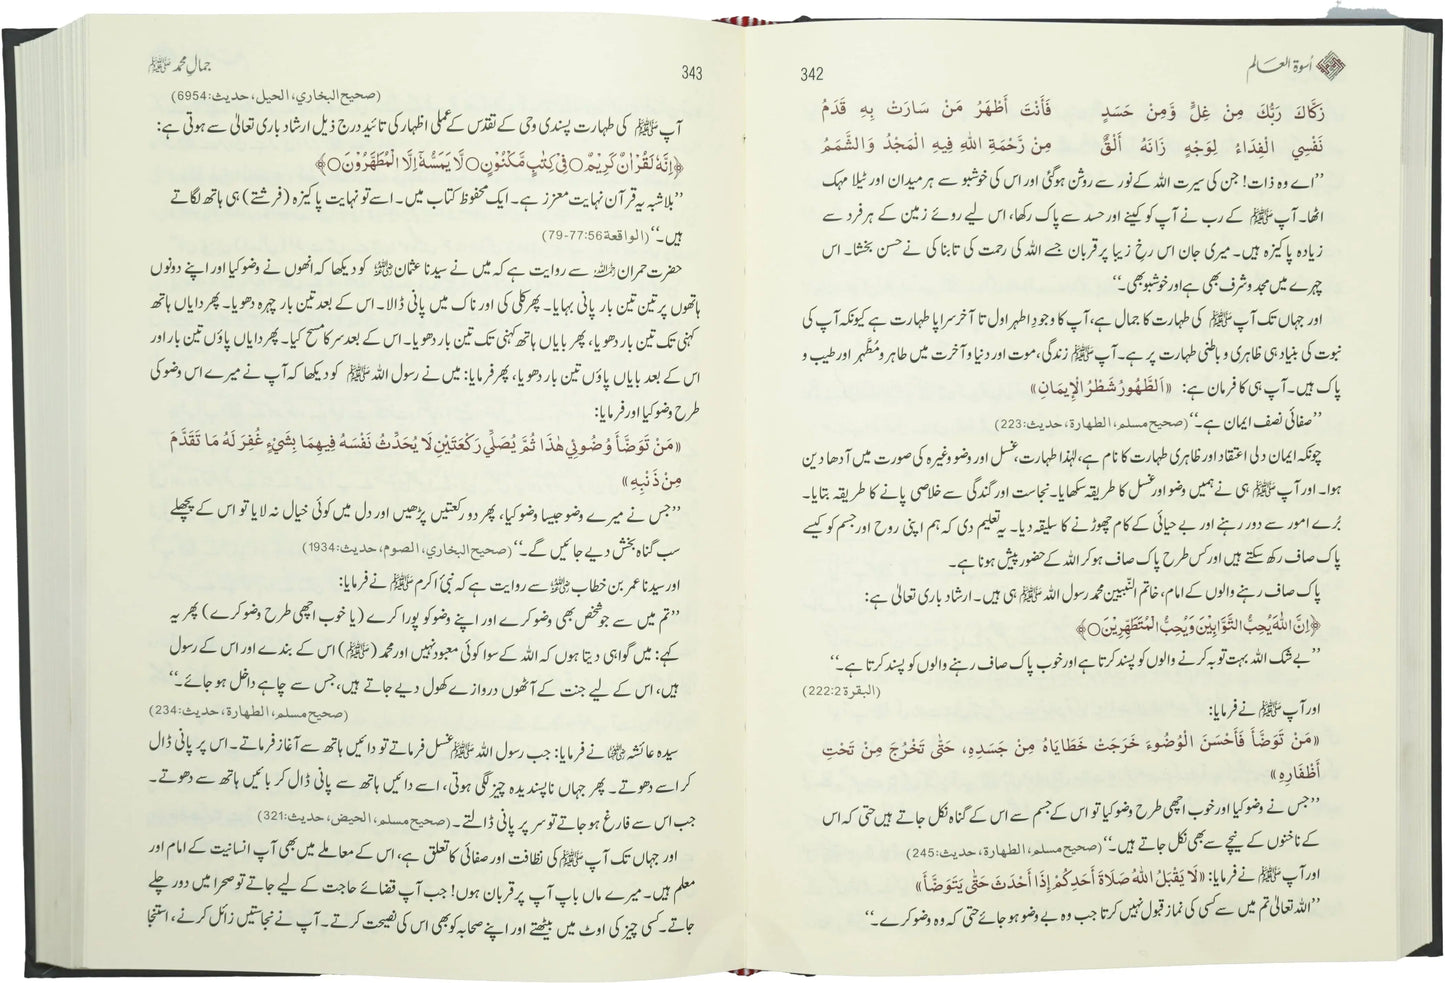 اُسوۃ العالم
342
زَكَّاكَ رَبُّكَ مِنْ غِلٍّ وَّمِنْ حَسَدٍ فَأَنْتَ أَطْهَرُ مَنْ سَارَتْ بِهِ قَدَمُ
نَفْسِي الْفِدَاءُ لِوَجْهٍ زَانَهُ أَلَقٌ مِنْ رَّحْمَةِ اللهِ فِيهِ الْمَجْدُ وَالشَّمَمُ
’’اے وہ ذات! جن کی سیرت اللہ کے نور سے روشن ہوگئی اور اس کی خوشبو سے ہر میدان اور ٹیلا مہک
اٹھا۔ آپ ﷺ کے رب نے آپ کو کینے اور حسد سے پاک رکھا، اس لیے روئے زمین کے ہر فرد سے
زیادہ پاکیزہ ہیں۔ میری جان اس رخِ زیبا پر قربان جسے اللہ کی رحمت کی تابناکی نے حسن بخشا۔ اس
چہرے میں مجد و شرف بھی ہے اور خوشبو بھی۔‘‘
اور جہاں تک آپ ﷺ کی طہارت کا جمال ہے، آپ کا وجودِ اطہر اول تا آخر سراپا طہارت ہے کیونکہ آپ کی
نبوت کی بنیاد ہی ظاہری و باطنی طہارت پر ہے۔ آپ ﷺ زندگی، موت اور دنیا و آخرت میں طاہر و مُطَہر اور طیب و
پاک ہیں۔ آپ ہی کا فرمان ہے: «اَلطُّهُورُ شَطْرُ الْإِيمَانِ»
’’صفائی نصف ایمان ہے۔‘‘ (صحيح مسلم، الطهارة، حديث:223)
چونکہ ایمان دلی اعتقاد اور ظاہری طہارت کا نام ہے، لہٰذا طہارت، غسل اور وضو وغیرہ کی صورت میں آدھا دین
ہوا۔ اور آپ ﷺ ہی نے ہمیں وضو اور غسل کا طریقہ سکھایا۔ نجاست اور گندگی سے خلاصی پانے کا طریقہ بتایا۔
بُرے امور سے دور رہنے اور بے حیائی کے کام چھوڑنے کا سلیقہ دیا۔ یہ تعلیم دی کہ ہم اپنی روح اور جسم کو کیسے
پاک صاف رکھ سکتے ہیں اور کس طرح پاک صاف ہو کر اللہ کے حضور پیش ہونا ہے۔
پاک صاف رہنے والوں کے امام، خاتم النّبیین محمد رسول اللہ ﷺ ہی ہیں۔ ارشاد باری تعالیٰ ہے:
﴿اِنَّ اللّٰهَ يُحِبُّ التَّوَّابِيْنَ وَيُحِبُّ الْمُتَطَهِّرِيْنَ ○﴾
’’بے شک اللہ بہت توبہ کرنے والوں کو پسند کرتا ہے اور خوب پاک صاف رہنے والوں کو پسند کرتا ہے۔‘‘
(البقرة 222:2)
اور آپ ﷺ نے فرمایا:
«مَنْ تَوَضَّأَ فَأَحْسَنَ الْوُضُوءَ خَرَجَتْ خَطَايَاهُ مِنْ جَسَدِهِ، حَتّٰى تَخْرُجَ مِنْ تَحْتِ
أَظْفَارِهِ»
’’جس نے وضو کیا اور خوب اچھی طرح وضو کیا تو اس کے جسم سے اس کے گناہ نکل جاتے ہیں حتی کہ اس
کے ناخنوں کے نیچے سے بھی نکل جاتے ہیں۔‘‘ (صحيح مسلم، الطهارة، حديث:245)
اور آپ ﷺ نے فرمایا: «لَا يَقْبَلُ اللهُ صَلَاةَ أَحَدِكُمْ إِذَا أَحْدَثَ حَتّٰى يَتَوَضَّأَ»
’’اللہ تعالیٰ تم میں سے کسی کی نماز قبول نہیں کرتا جب وہ بے وضو ہو جائے حتی کہ وہ وضو کرے۔‘‘
343
جمالِ محمد ﷺ
(صحيح البخاري، الحيل، حديث:6954)
آپ ﷺ کی طہارت پسندی وحی کے تقدس کے عملی اظہار کی تائید درج ذیل ارشاد باری تعالیٰ سے ہوتی ہے:
﴿اِنَّهٗ لَقُرْاٰنٌ كَرِيْمٌ ○ فِيْ كِتٰبٍ مَّكْنُوْنٍ ○ لَّا يَمَسُّهٗٓ اِلَّا الْمُطَهَّرُوْنَ ○﴾
’’بلاشبہ یہ قرآن نہایت معزز ہے۔ ایک محفوظ کتاب میں۔ اسے تو نہایت پاکیزہ (فرشتے) ہی ہاتھ لگاتے
ہیں۔‘‘ (الواقعة 56:77-79)
حضرت حمران رحمہ اللہ سے روایت ہے کہ میں نے سیدنا عثمان رضی اللہ عنہ کو دیکھا کہ انھوں نے وضو کیا اور اپنے دونوں
ہاتھوں پر تین تین بار پانی بہایا۔ پھر کلی کی اور ناک میں پانی ڈالا۔ اس کے بعد تین بار چہرہ دھویا۔ پھر دایاں ہاتھ
کہنی تک تین بار دھویا، پھر بایاں ہاتھ کہنی تک تین بار دھویا۔ اس کے بعد سر کا مسح کیا۔ پھر دایاں پاؤں تین بار اور
اس کے بعد بایاں پاؤں تین بار دھویا، پھر فرمایا: میں نے رسول اللہ ﷺ کو دیکھا کہ آپ نے میرے اس وضو کی
طرح وضو کیا اور فرمایا:
«مَنْ تَوَضَّأَ وُضُوئِي هٰذَا ثُمَّ يُصَلِّي رَكْعَتَيْنِ لَا يُحَدِّثُ نَفْسَهُ فِيهِمَا بِشَيْءٍ غُفِرَ لَهُ مَا تَقَدَّمَ
مِنْ ذَنْبِهِ»
’’جس نے میرے وضو جیسا وضو کیا، پھر دو رکعتیں پڑھیں اور دل میں کوئی خیال نہ لایا تو اس کے پچھلے
سب گناہ بخش دیے جائیں گے۔‘‘ (صحيح البخاري، الصوم، حديث:1934)
اور سیدنا عمر بن خطاب رضی اللہ عنہ سے روایت ہے کہ نبیٔ اکرم ﷺ نے فرمایا:
’’تم میں سے جو شخص بھی وضو کرے اور اپنے وضو کو پورا کرے (یا خوب اچھی طرح وضو کرے) پھر یہ
کہے: میں گواہی دیتا ہوں کہ اللہ کے سوا کوئی معبود نہیں اور محمد (ﷺ) اس کے بندے اور اس کے رسول
ہیں، اس کے لیے جنت کے آٹھوں دروازے کھول دیے جاتے ہیں، جس سے چاہے داخل ہو جائے۔‘‘
(صحيح مسلم، الطهارة، حديث:234)
سیدہ عائشہ رضی اللہ عنہا نے فرمایا: جب رسول اللہ ﷺ غسل فرماتے تو دائیں ہاتھ سے آغاز فرماتے۔ اس پر پانی ڈال
کر اسے دھوتے۔ پھر جہاں ناپسندیدہ چیز لگی ہوتی، اسے دائیں ہاتھ سے پانی ڈال کر بائیں ہاتھ سے دھوتے۔
جب اس سے فارغ ہو جاتے تو سر پر پانی ڈالتے۔ (صحيح مسلم، الحيض، حديث:321)
اور جہاں تک آپ ﷺ کی نظافت اور صفائی کا تعلق ہے، اس کے معاملے میں بھی آپ انسانیت کے امام اور
معلم ہیں۔ میرے ماں باپ آپ پر قربان ہوں! جب آپ قضائے حاجت کے لیے جاتے تو صحرا میں دور چلے
جاتے۔ کسی چیز کی اوٹ میں بیٹھتے اور اپنے صحابہ کو بھی اس کی نصیحت کرتے۔ آپ نے نجاستیں زائل کرنے، استنجا